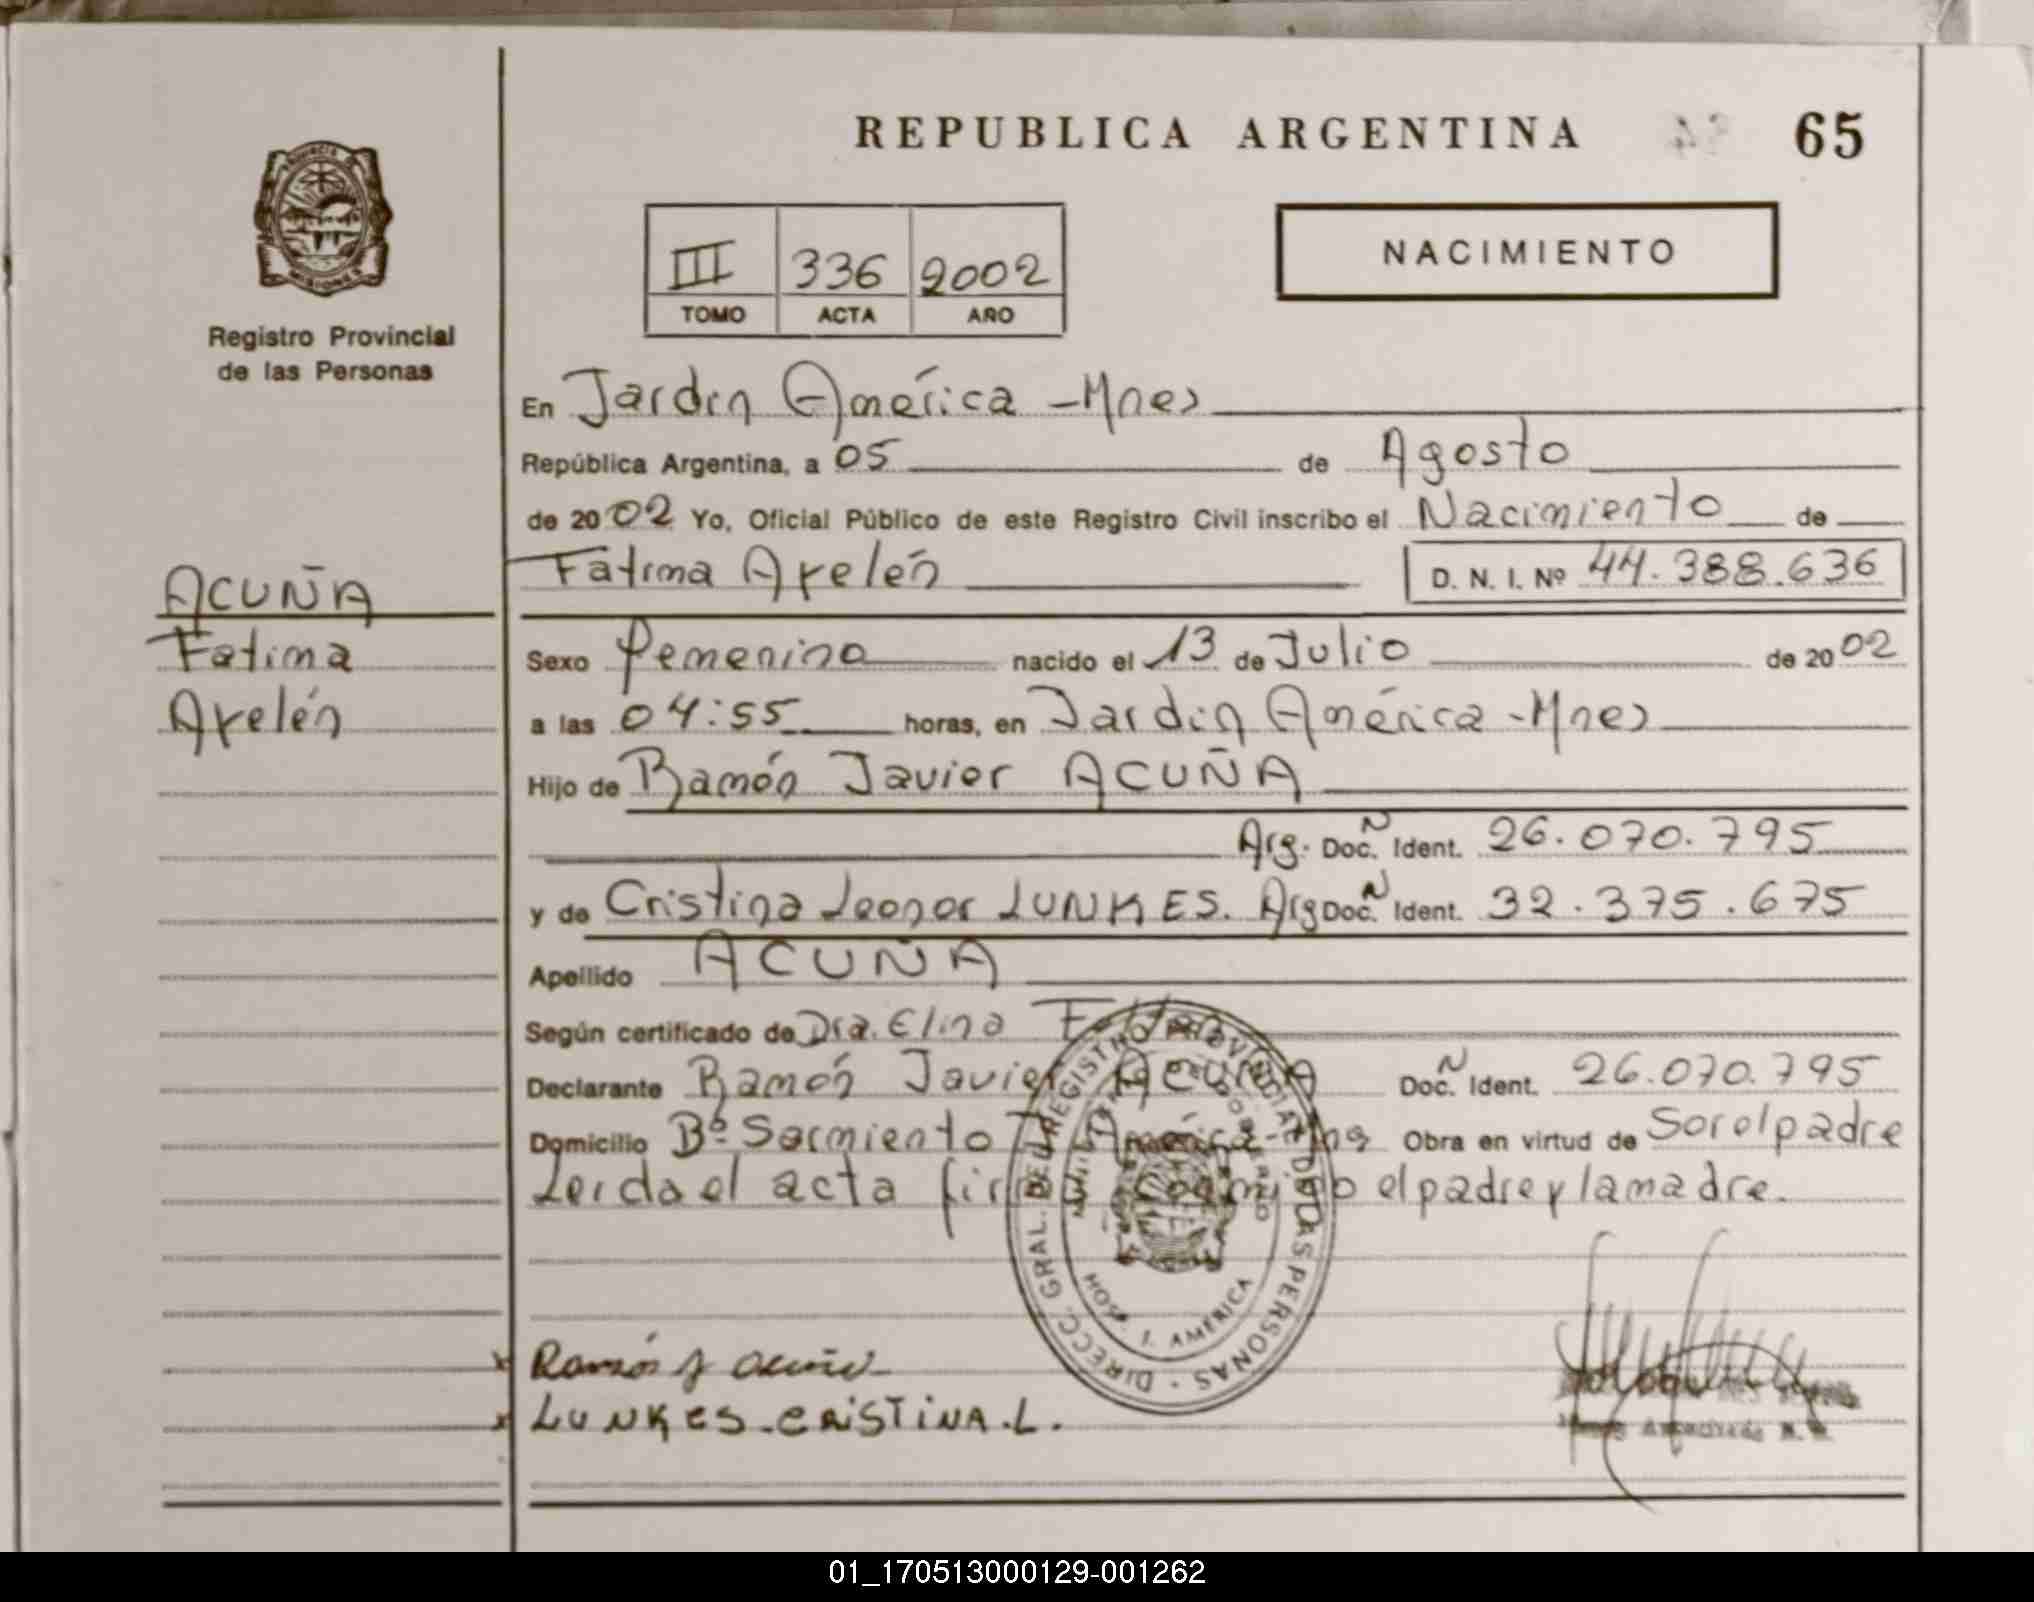 REPUBLICA ARGENTINA 65
PROVINCIA DE MISIONES
Registro Provincial
de las Personas
III 336 2002
TOMO ACTA AÑO
NACIMIENTO
En Jardin América - Mnes
República Argentina, a 05 de Agosto
de 2002 Yo, Oficial Público de este Registro Civil inscribo el Nacimiento de
Fatima Ayelén D. N. I. Nº 44.388.636
ACUÑA
Fatima
Ayelén
Sexo Femenino nacido el 13 de Julio de 2002
a las 04:55 horas, en Jardin América - Mnes
Hijo de Ramón Javier ACUÑA
Arg. Doc. N Ident. 26.070.795
y de Cristina Leonor LUNKES. Arg Doc. N Ident. 32.375.675
Apellido ACUÑA
Según certificado de Dra. Elina
Declarante Ramón Javier ACUÑA Doc. N Ident. 26.070.795
Domicilio Bº Sarmiento J. América - Mns Obra en virtud de Ser el padre
Leida el acta firman conmigo el padre y la madre.
DIRECC. GRAL. DEL REGISTRO PROVINCIAL DE LAS PERSONAS
HOSP. J. AMERICA
x Ramón J Acuña
x LUNKES - CRISTINA . L .
01_170513000129-001262